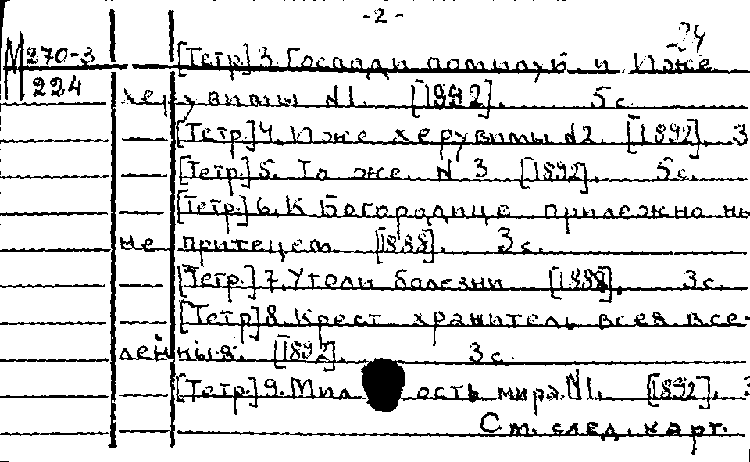 -2-
24
М270-3 [Тетр.] 3. Господи помилуй и Иже
224 херувимы N1. [1892]. 5с.
[Тетр.] 4. Иже херувимы N2. [1892]. 3
[Тетр.] 5. То же. N 3 [1892]. 5с.
[Тетр.] 6. К Богородице прилежно ны
не притецем [1888]. 3с.
[Тетр.] 7. Утоли болезни [1888]. 3с.
[Тетр.] 8. Крест хранитель всея все-
ленныя. [1892]. 3с
[Тетр.] 9. Мил ость мира. N1. [1892]. 3
См. след. карт.